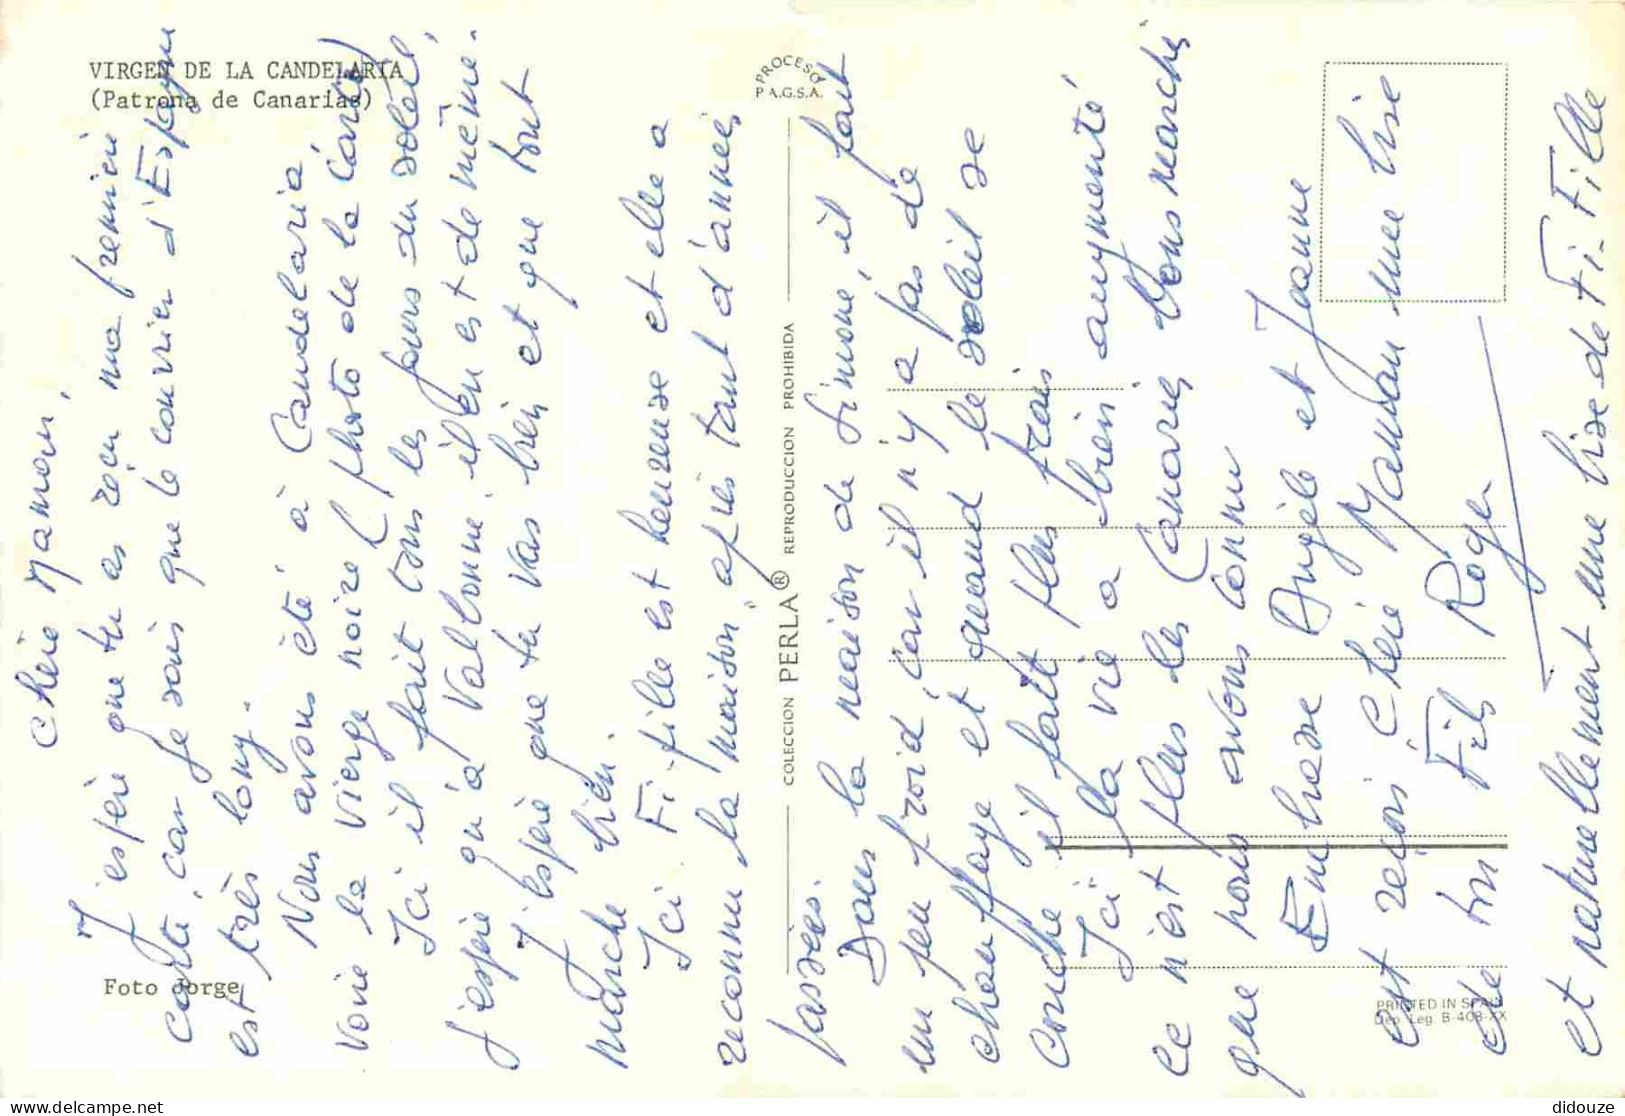 VIRGEN DE LA CANDELARIA
(Patrona de Canarias)
Foto Jorge
PROCESO
P.A.G.S.A.
COLECCION PERLA® REPRODUCCION PROHIBIDA
PRINTED IN SPAIN
Dep. Leg. B-408-XX
Chère Maman,
J'espère que tu as reçu ma première
carte, car je sais que le courrier d'Espagne
est très long.
Nous avons été à Candelaria
voir la vierge noire (photo de la carte)
Ici il fait tous les jours du soleil,
j'espère qu'à Valbonne, il en est de même.
J'espère que tu vas bien et que tout
marche bien.
Ici Fi-fille est heureuse et elle a
reconnu "la maison" après tant d'années
passées.
Dans la maison de Simone, il fait
un peu froid, car il n'y a pas de
chauffage et quand le soleil se
couche il fait plus frais
Ici la vie a bien augmenté
ce n'est plus les Canaries bons marchés
que nous avons connu
Embrasse Angèle et Jeanne
et reçois Chère Maman une bise
de ton Fils Roger
et naturellement une bise de Fi-Fille